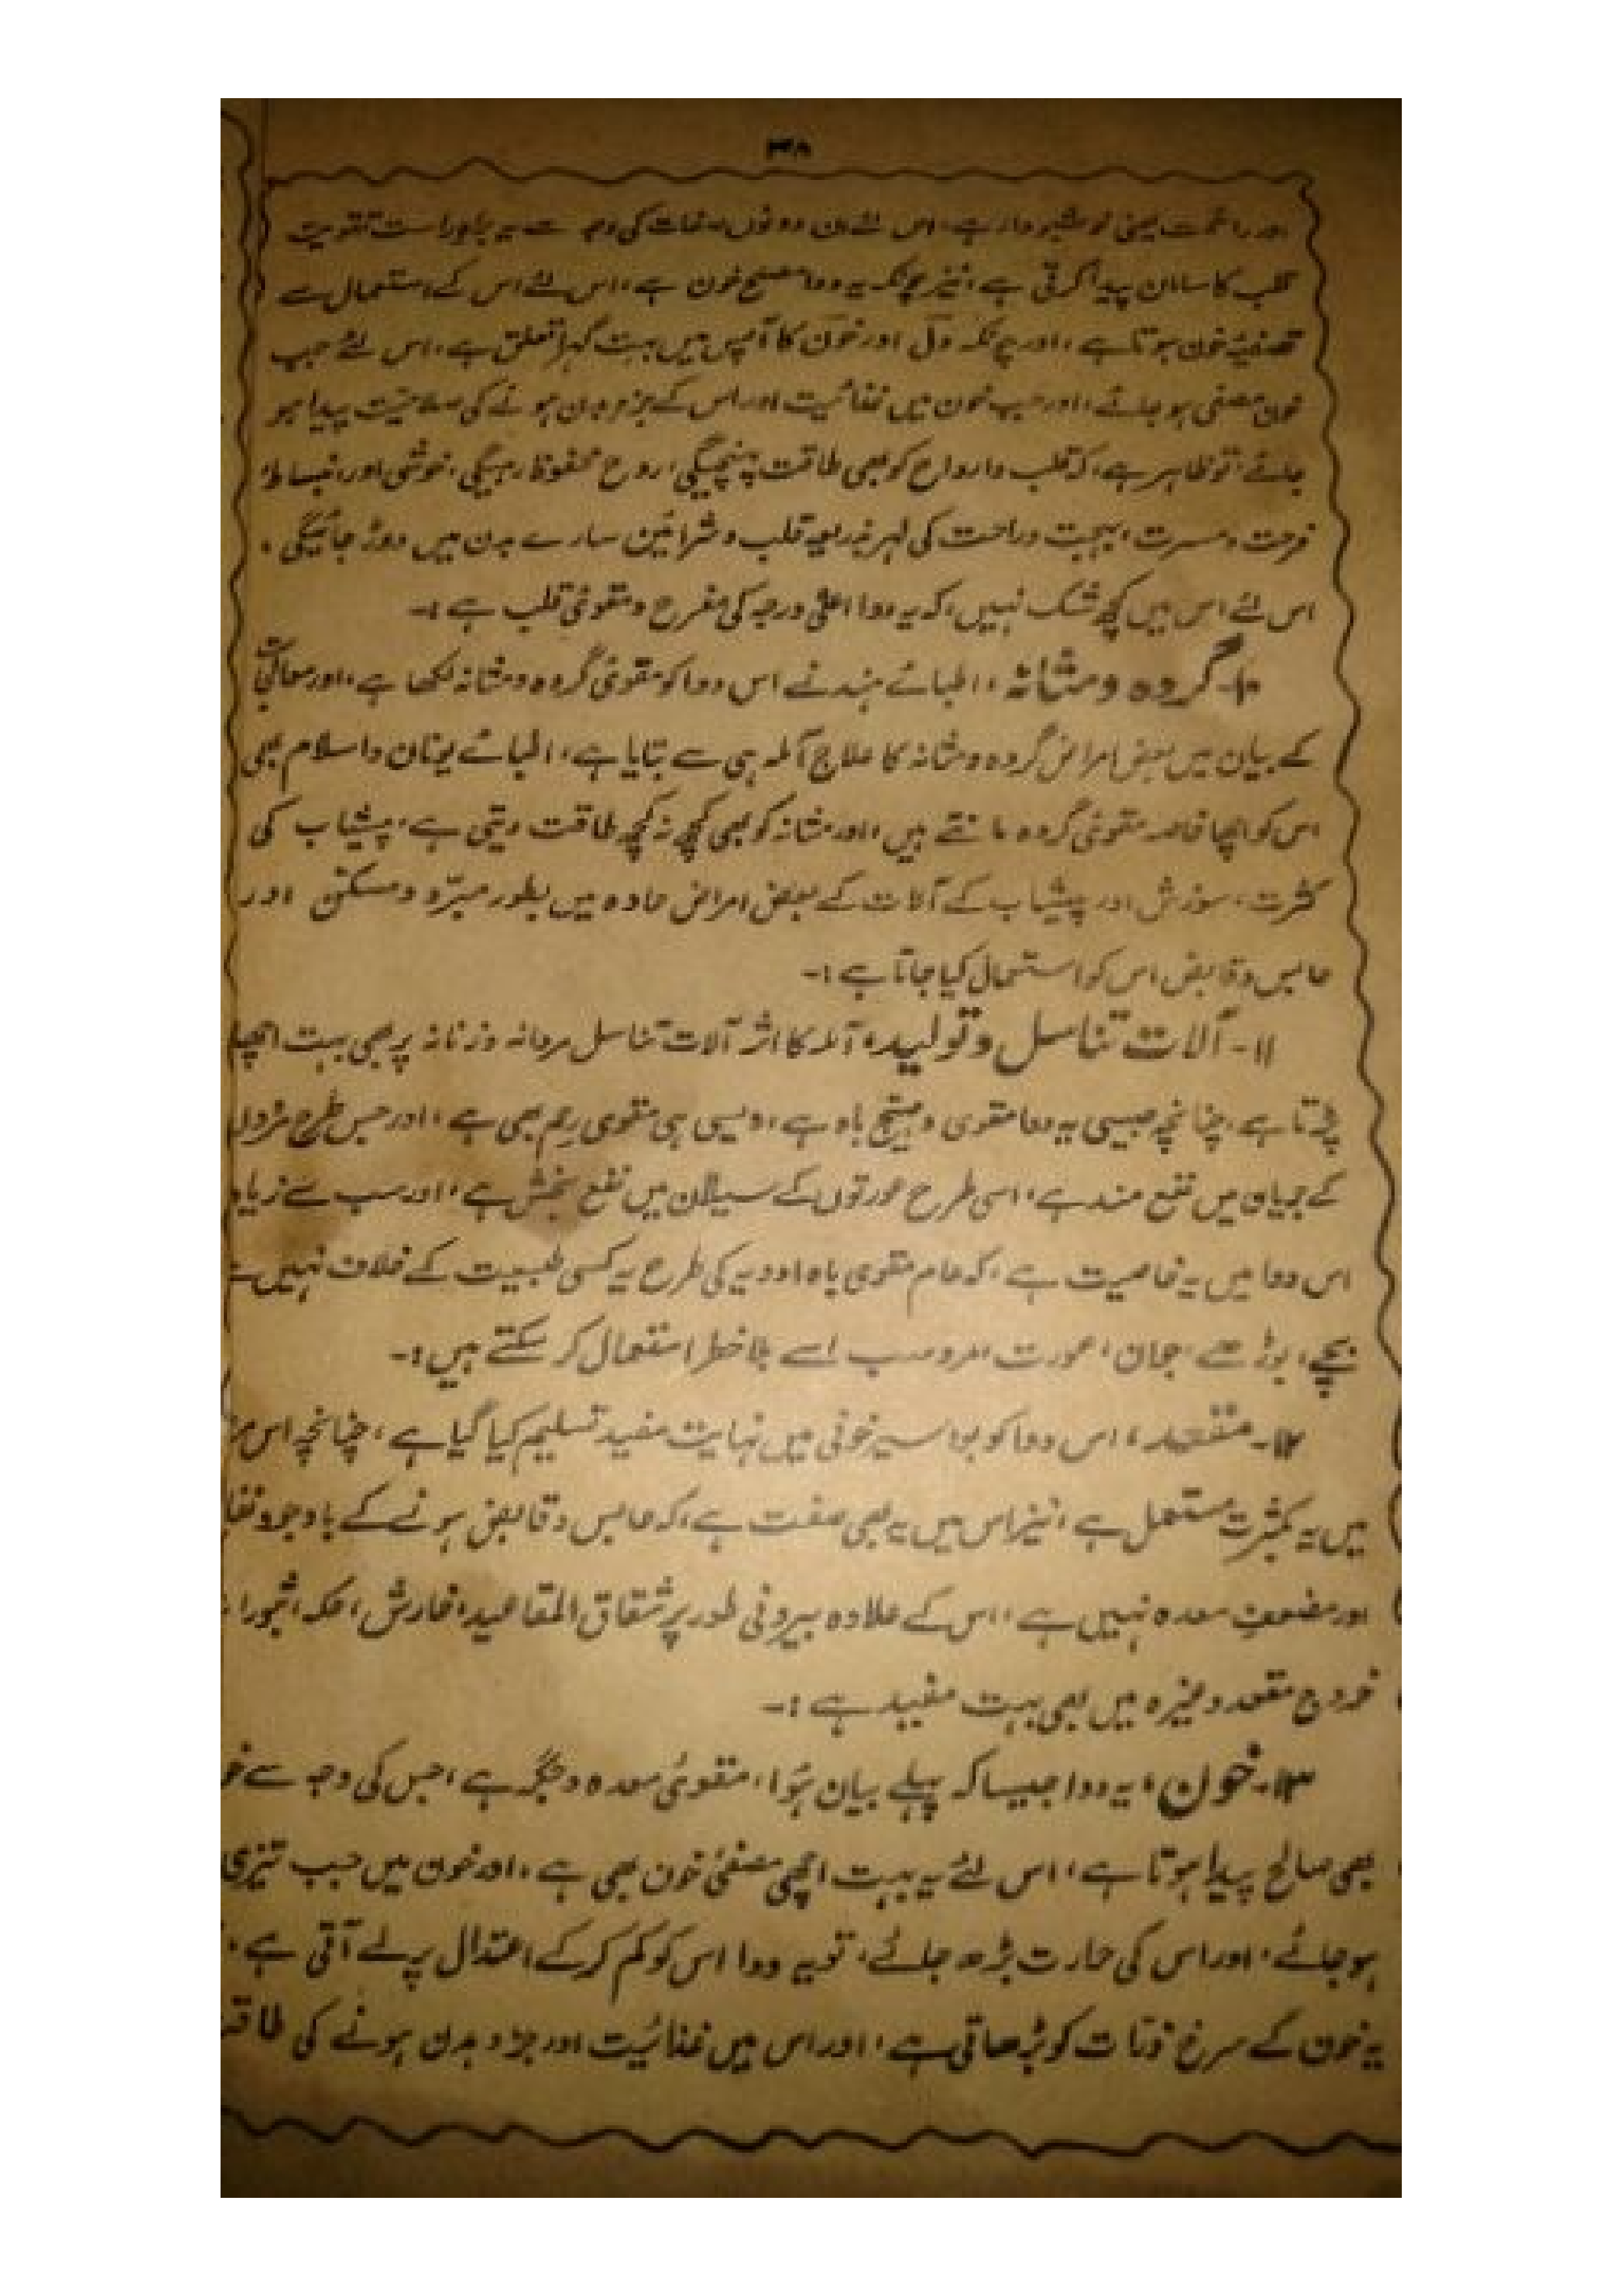 ۳۸
اور رائحت یعنی خوشبودار ہے، اس لئے ان دونوں صفات کی وجہ سے یہ براہ راست تقویت
قلب کا سامان پیدا کرتی ہے، نیز چونکہ یہ دوا مصلح خون ہے، اس لئے اس کے استعمال سے
تصفیۂ خون ہوتا ہے، اور چونکہ دل اور خون کا آپس میں بہت گہرا تعلق ہے، اس لئے جب
خون مصفی ہو جائے، اور جب خون میں غذائیت اور اس کے جزو بدن ہونے کی صلاحیت پیدا ہو
جائے، تو ظاہر ہے، کہ قلب و ارواح کو بھی طاقت پہنچیگی، روح محفوظ رہیگی، خوشی اور انبساط،
فرحت و مسرت، بہجت و راحت کی لہر بذریعہ قلب و شرائین سارے بدن میں دوڑ جائیگی،
اس لئے اس میں کچھ شک نہیں، کہ یہ دوا اعلیٰ درجہ کی مفرح و مقویٔ قلب ہے :-
۱۰- گردہ و مثانہ، اطبائے ہند نے اس دوا کو مقویٔ گردہ و مثانہ لکھا ہے، اور معالجات
کے بیان میں بعض امراض گردہ و مثانہ کا علاج آملہ ہی سے بتایا ہے، اطبائے یونان و اسلام بھی
اس کو اچھا خاصہ مقویٔ گردہ مانتے ہیں، اور مثانہ کو بھی کچھ نہ کچھ طاقت دیتی ہے، پیشاب کی
کثرت، سوزش اور پیشاب کے آلات کے بعض امراض حادہ میں بطور مبرّد و مسکن اور
حابس و قابض اس کو استعمال کیا جاتا ہے :-
۱۱- آلات تناسل و تولید، آملہ کا اثر آلات تناسل مردانہ و زنانہ پر بھی بہت اچھا
پڑتا ہے، چنانچہ جیسی یہ دوا مقوی و مہیج باہ ہے، ویسی ہی مقوی رحم بھی ہے، اور جس طرح مردوں
کے جریان میں نفع مند ہے، اسی طرح عورتوں کے سیلان میں نفع بخش ہے، اور سب سے زیادہ
اس دوا میں یہ خاصیت ہے، کہ عام مقوی باہ ادویہ کی طرح یہ کسی طبیعت کے خلاف نہیں
بچے، بوڑھے، جوان، عورت مرد سب اسے بلا خطر استعمال کر سکتے ہیں :-
۱۲- مقعد، اس دوا کو بواسیر خونی میں نہایت مفید تسلیم کیا گیا ہے، چنانچہ اس
میں یہ بکثرت مستعمل ہے، نیز اس میں یہ بھی صفت ہے، کہ حابس و قابض ہونے کے باوجود
اور مضعف معدہ نہیں ہے، اس کے علاوہ بیرونی طور پر شقاق المقاعید، خارش، حکہ،
خروج مقعد وغیرہ میں بھی بہت مفید ہے :-
۱۳- خون، یہ دوا جیسا کہ پہلے بیان ہوا، مقویٔ معدہ و جگر ہے، جس کی وجہ سے
بھی صالح پیدا ہوتا ہے، اس لئے یہ بہت اچھی مصفیٔ خون بھی ہے، اور خون میں جب تیزی
ہو جائے، اور اس کی حرارت بڑھ جائے، تو یہ دوا اس کو کم کرکے اعتدال پر لے آتی ہے،
یہ خون کے سرخ ذرات کو بڑھاتی ہے، اور اس میں غذائیت اور جزو بدن ہونے کی